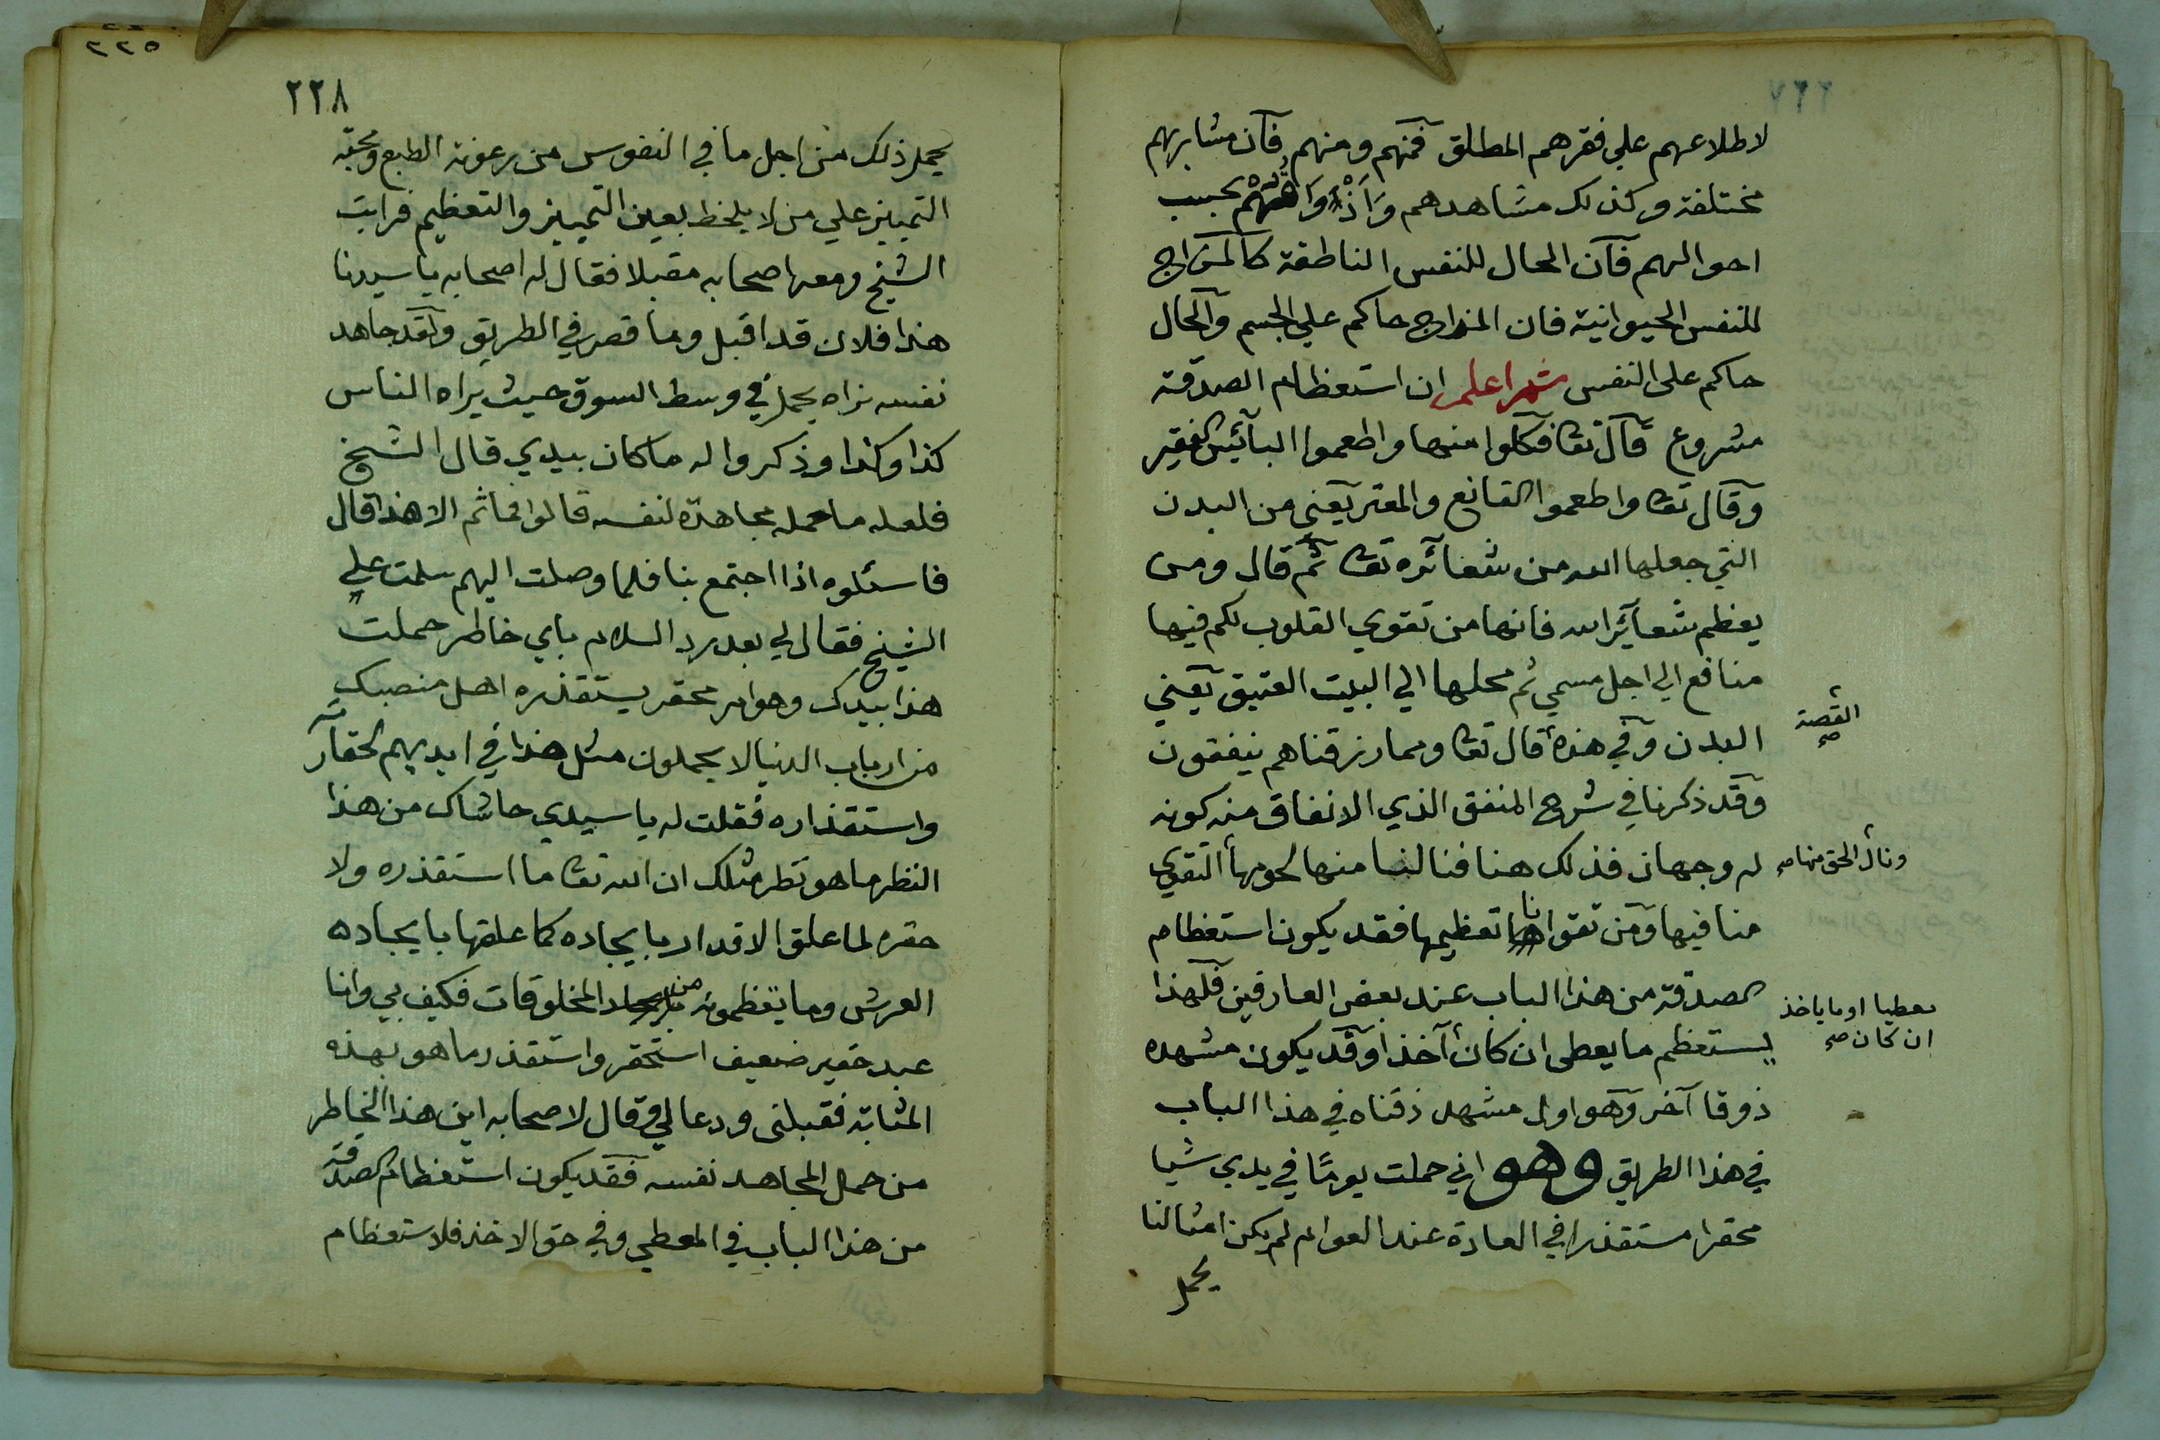 لاطلاعهم علي فقرهم المطلق فمنهم ومنهم فان مشاربهم
مختلفة وكذلك مشاهدهم وَاَذْوَاقُهُمْ بحسب
احوالهم فان الحال للنفس الناطقة كالمزاج
للنفس الحيوانية فان المزاج حاكم علي الجسم والحال
حاكم على النفس ثم اعلم ان استعظام الصدقة
مشروع قال تعا فكلوا منها واطعموا البآئس الفقير
وقال تعا واطعموا القانع والمعتر يعني من البدن
التي جعلها الله من شعائره تعا ثم قال ومن
يعظم شعآئر الله فانها من تقوي القلوب لكم فيها
منافع الي اجل مسمي ثم محلها الي البيت العتيق يعني
البدن وفي هذه قال تعا ومما رزقناهم ينفقون
القصة صح
وقد ذكرنا في شرح المنفق الذي الانفاق منه كونه
له وجهان فذلك هنا فنالنا منها لحومها التقوي
ونال الحق منها صح
منا فيها ومن تقوانا تعظيمها فقد يكون استعظام
الصدقة من هذا الباب عند بعض العارفين فلهذا
يستعظم ما يعطى ان كان آخذا وقد يكون مشهده
معطيا او ما ياخذ
ان كان صح
ذوقا آخر وهو اول مشهد ذقناه في هذا الباب
في هذا الطريق وهو اني حملت يومًا في يدي شيا
محقرا مستقذرا في العادة عند العوام لم يكن امثالنا
يحمل
٢٢٥
٢٢٨
يحمل ذلك من اجل ما في النفوس من رعونة الطبع ومحبة
التمييز علي من لا يلحظ بعين التمييز والتعظيم فرايت
الشيخ ومعه اصحابه مقبلا فقال له اصحابه يا سيدنا
هذا فلان قد اقبل وما قصر في الطريق ولقد جاهد
نفسه نراه يحمل في وسط السوق حيث يراه الناس
كذا وكذا وذكروا له ما كان بيدي قال الشيخ
فلعله ما حمله مجاهدة لنفسه قالوا فما ثم الا هذا قال
فاسئلوه اذا اجتمع بنا فلما وصلت اليهم سلمت علي
الشيخ فقال لي بعد رد السلام باي خاطر حملت
هذا بيدك وهو امر محقر يستقذره اهل منصبك
من ارباب الدنيا لا يحملون مثل هذا في ايديهم لحقارته
واستقذاره فقلت له يا سيدي حاشاك من هذا
النظر ما هو نظر مثلك ان الله تعا ما استقذره ولا
حقره لما علق الاقدار بايجاده كما علقها بايجاده
العرش وما تعظمونه من المخلوقات فكيف بي وانا
عبد حقير ضعيف استحقر واستقذر ما هو بهذه
المثابة فقبلني ودعا لي وقال لاصحابه اين هذا الخاطر
من حمل المجاهد نفسه فقد يكون استعظام الصدقة
من هذا الباب في المعطي وفي حق الاخذ فلاستعظام